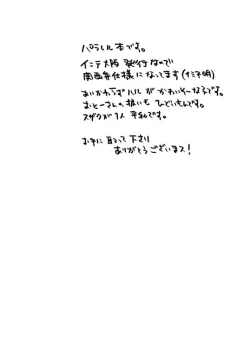 パラレル本です。
インテ大阪 発行なので
関西弁仕様になってます(イミ不明)
あいかわらずハルがかわいそーなるです。
おとーさんの扱いもひどいもんです。
スザクが1人 平和です。
お手に取って下さり
ありがとうございます!